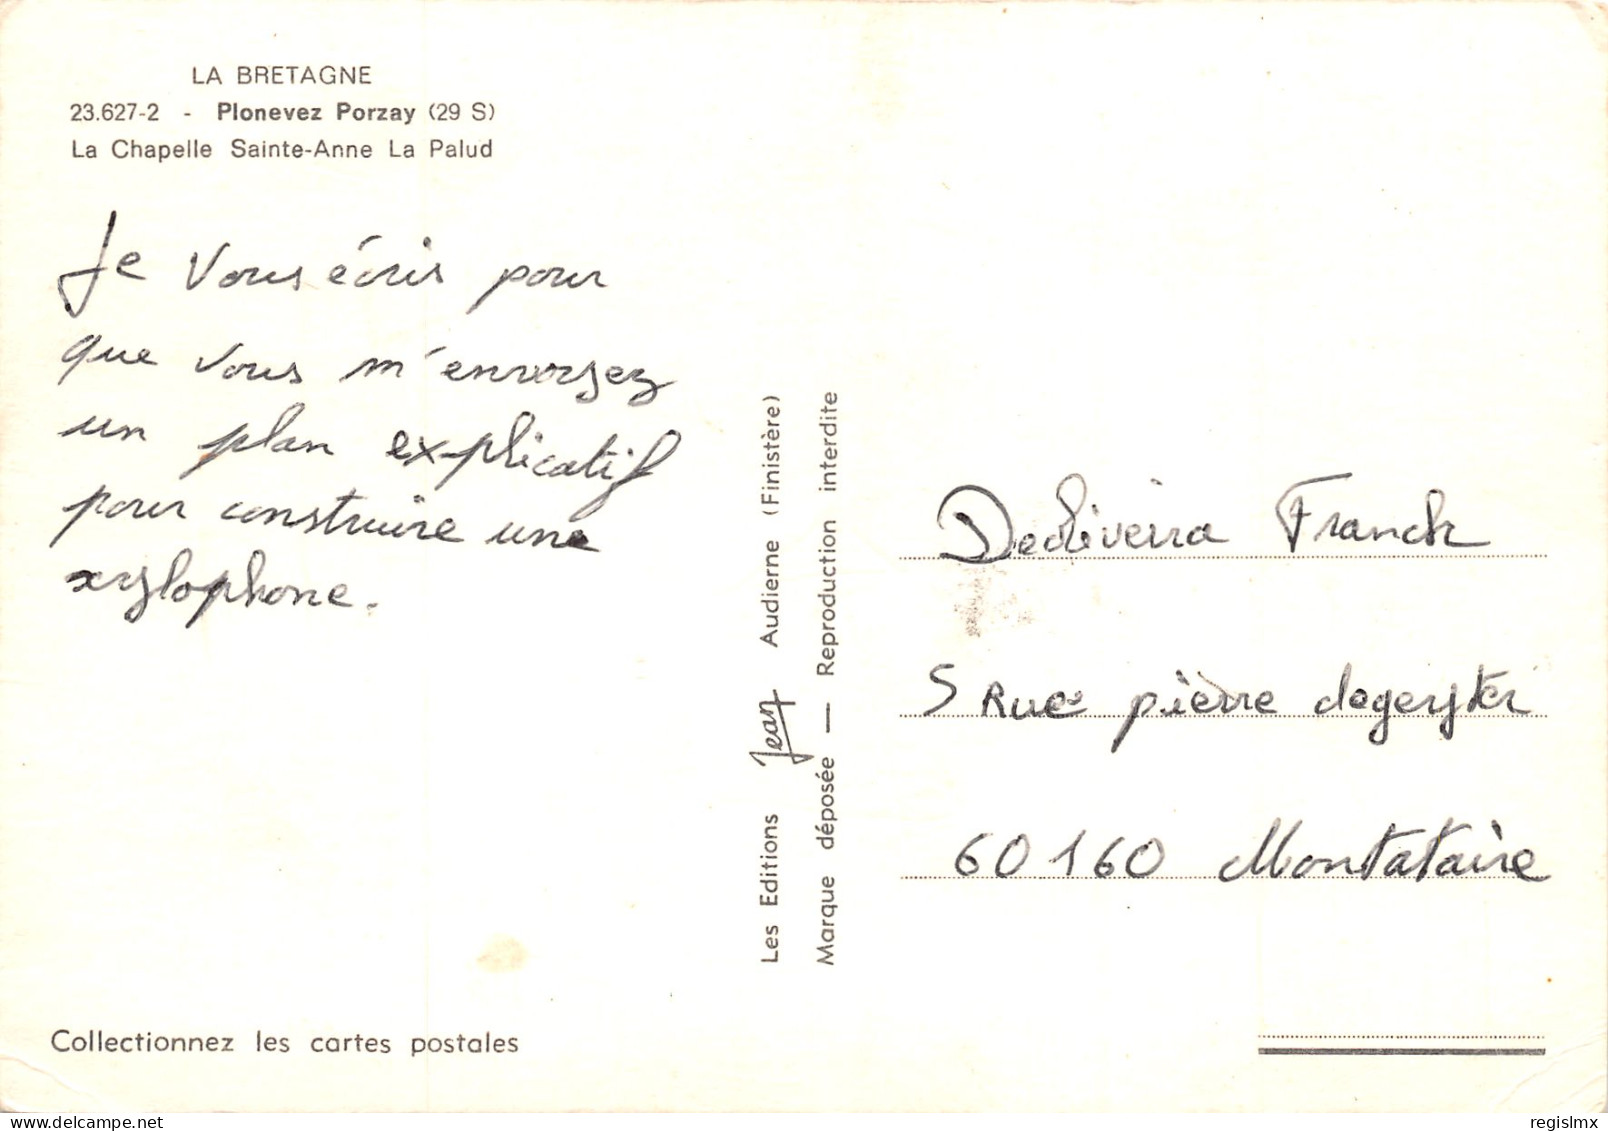 LA BRETAGNE
23.627-2 - Plonevez Porzay (29 S)
La Chapelle Sainte-Anne La Palud
Je vous écris pour
que vous m'envoyez
un plan explicatif
pour construire une
xylophone.
Collectionnez les cartes postales
Les Editions Jean Audierne (Finistère)
Marque déposée — Reproduction interdite
Dedliverra Franck
5 Rue pierre degeyter
60160 Montataire
regislmx